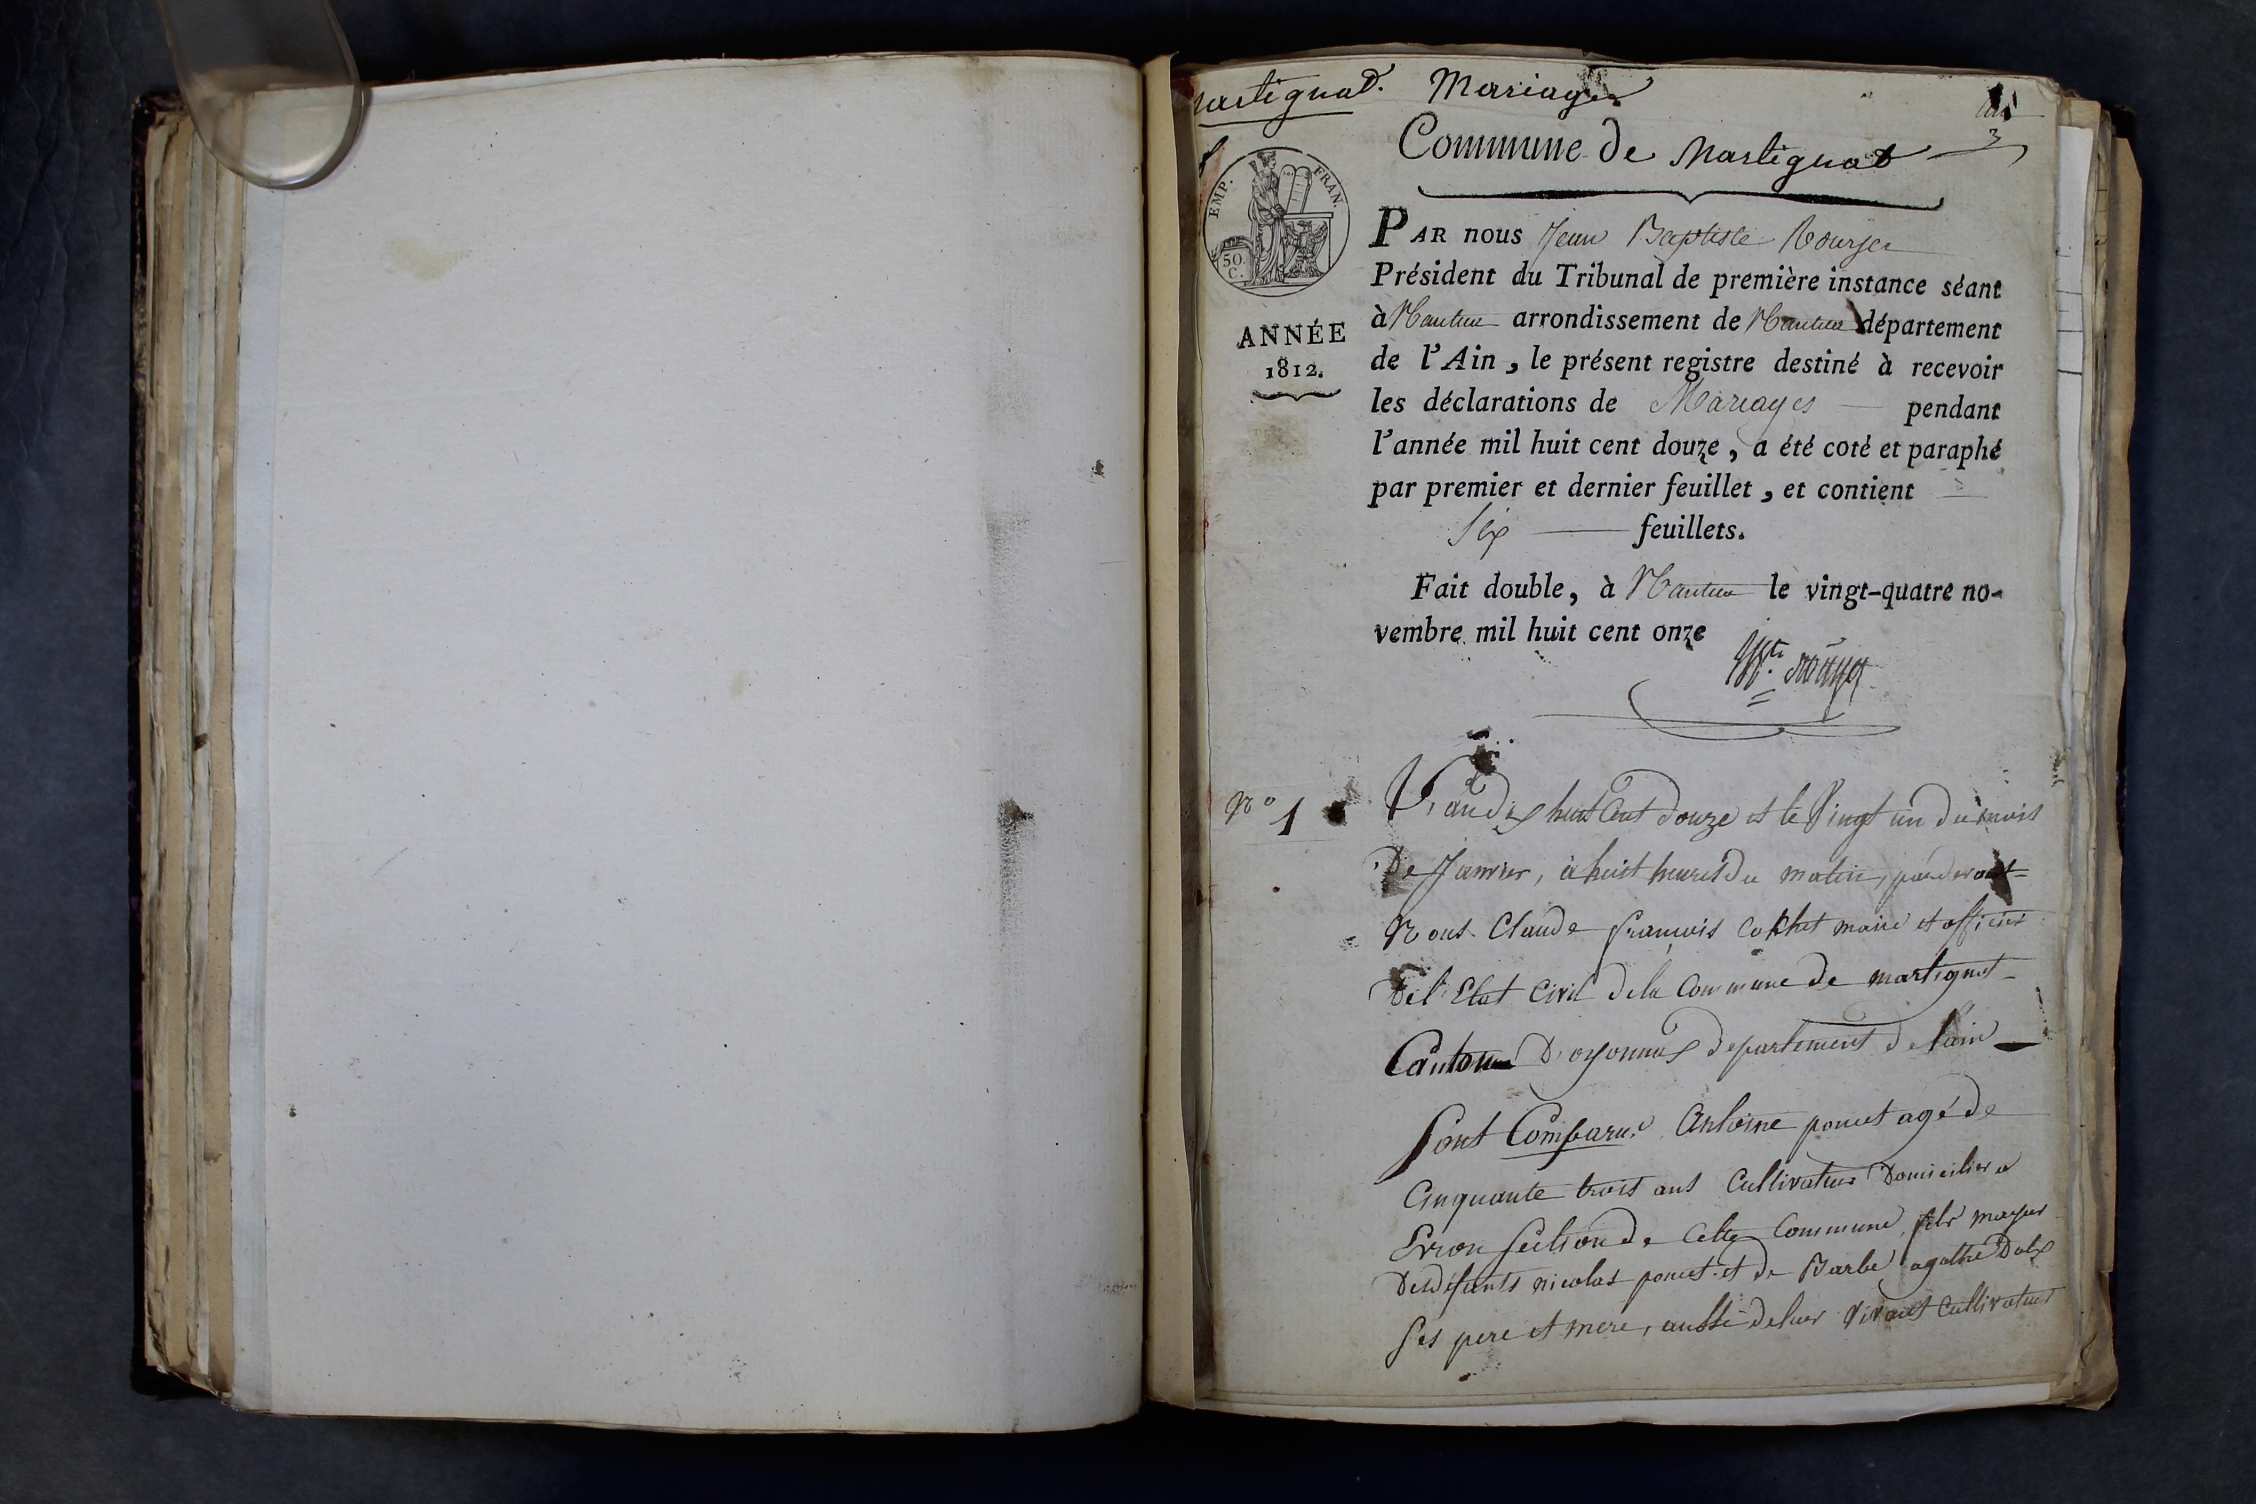 Martignat. Mariages
3
Commune de Martignat
EMP. FRAN.
50. C.
PAR nous Jean Baptiste Rouyer
Président du Tribunal de première instance séant
à Nantua arrondissement de Nantua département
ANNÉE
1812.
de l'Ain, le présent registre destiné à recevoir
les déclarations de Mariages pendant
l'année mil huit cent douze, a été coté et paraphé
par premier et dernier feuillet, et contient
Six feuillets.
Fait double, à Nantua le vingt-quatre no-
vembre mil huit cent onze
N° 1
L'an dix huit Cent Douze et le Vingt un du mois
De Janvier, à huit heures du matin, pardevant
Nous Claude françois maire et officier
De l'Etat Civil de la Commune de martignat
Canton D'oyonnax departement de l'ain
Sont Comparus Antoine poncet agé de
Cinquante trois ans Cultivateur Domicilier a
Evron Section de Cette Commune, fils mayeur
Des défunts nicolas poncet et de Barbe agathe
Ses pere et mere, aussi de leur Vivant Cultivateurs